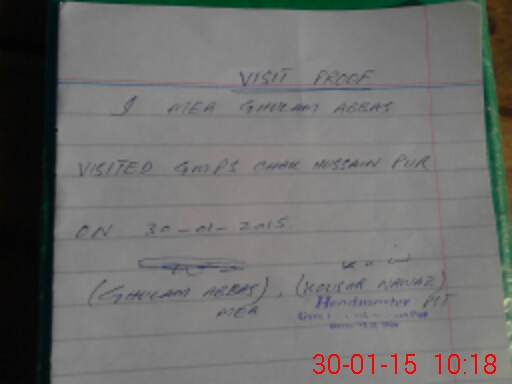 VISIT PROOF
I MEA GHULAM ABBAS
VISITED GMPS CHAK HUSSAIN PUR
ON 30-01-2015.
(GHULAM ABBAS), (KOUSAR NAWAZ)
MEA PST
Headmaster
30-01-15 10:18